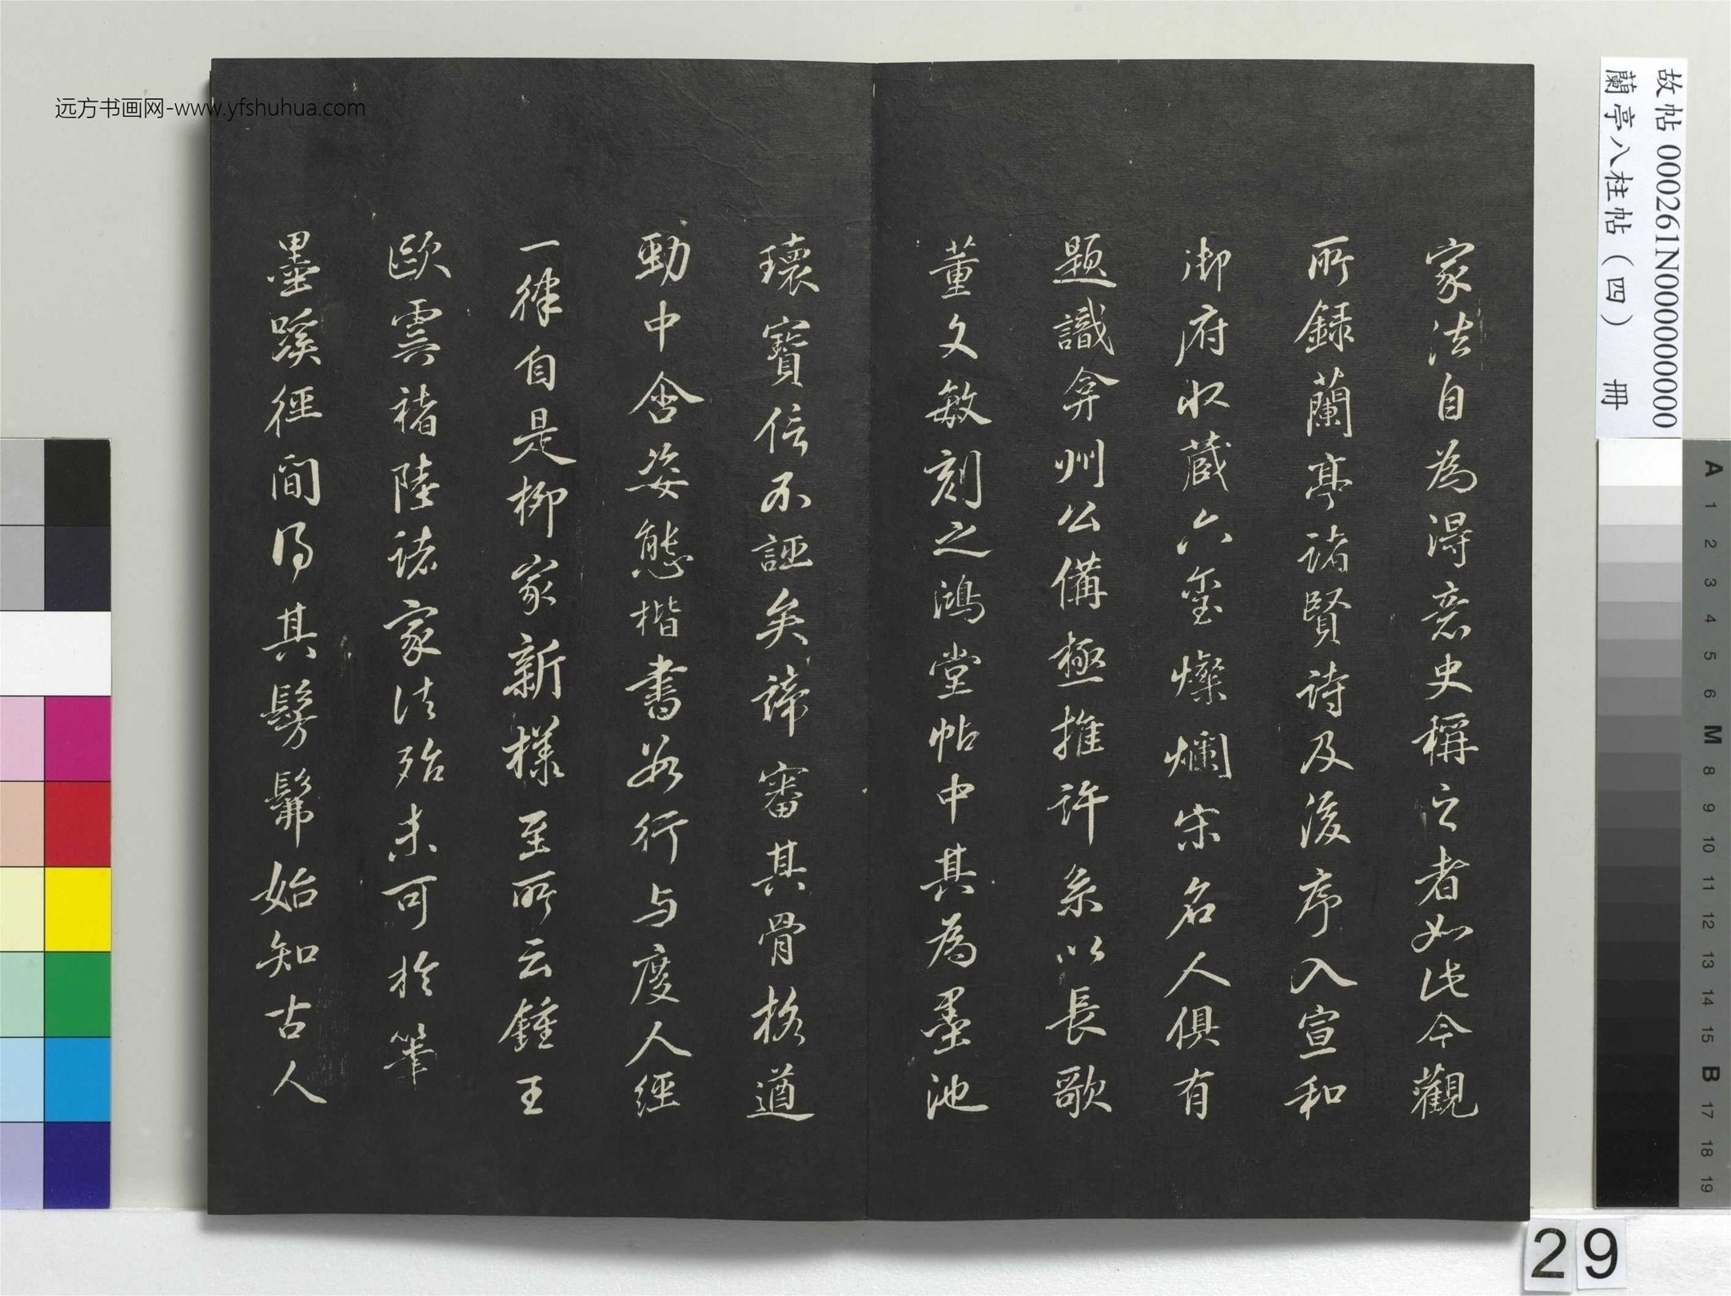 远方书画网-www.yfshuhua.com
故帖 000261N000000000
蘭亭八柱帖（四） 冊
家法自為得意史稱之者如此今觀
所錄蘭亭諸賢詩及後序入宣和
御府收藏六璽燦爛宋名人俱有
題識弇州公備極推許系以長歌
董文敏刻之鴻堂帖中其為墨池
瓌寶信不誣矣諦審其骨格遒
勁中含姿態楷書如行与度人經
一律自是柳家新樣至所云鍾王
歐虞褚陸諸家法殆未可於筆
墨蹊徑間得其髣髴始知古人
A
1
2
3
4
5
6
M
8
9
10
11
12
13
14
15
B
17
18
19
29